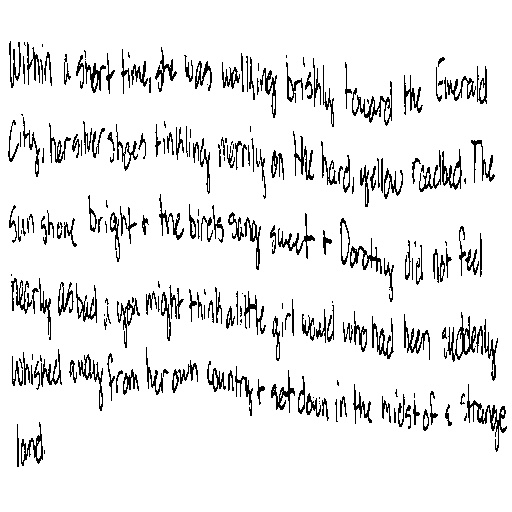 Within a short time, she was walking briskly toward the Emerald
City, her silver shoes tinkling merrily on the hard, yellow roadbed. The
sun shone bright + the birds sang sweet + Dorothy did not feel
nearly as bad as you might think a little girl would who had been suddenly
whisked away from her own country + set down in the midst of a strange
land.